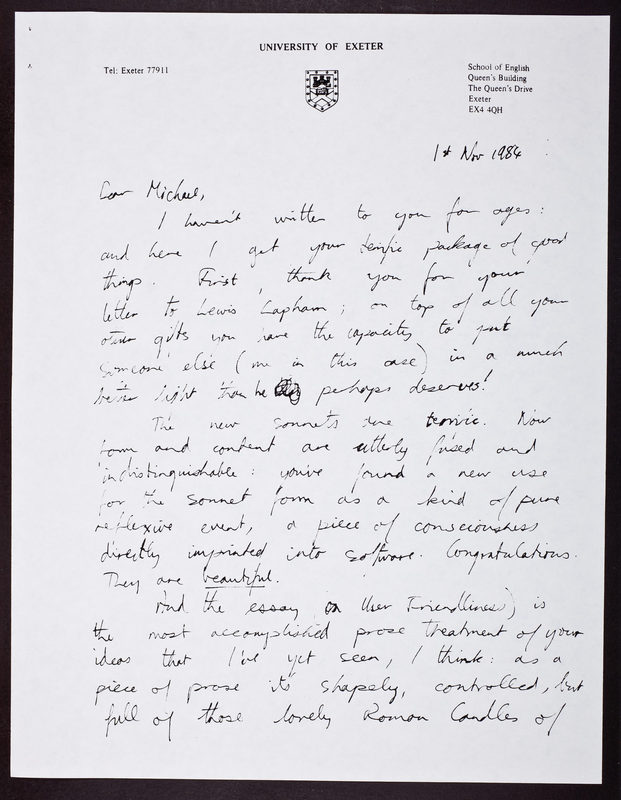 UNIVERSITY OF EXETER
Tel: Exeter 77911
School of English
Queen's Building
The Queen's Drive
Exeter
EX4 4QH
1st Nov 1984
Dear Michael,
I haven't written to you for ages:
and here I get your terrific package of good
things. First, thank you for your
letter to Lewis Lapham; on top of all your
other gifts you have the capacity to put
someone else (me in this case) in a much
better light than he perhaps deserves!
The new sonnets are terrific. Now
form and content are utterly fused and
indistinguishable: you've found a new use
for the sonnet form as a kind of pure
reflexive event, a piece of consciousness
directly imprinted into software. Congratulations.
They are beautiful.
And the essay (on User Friendliness) is
the most accomplished prose treatment of your
ideas that I've yet seen, I think: as a
piece of prose it's shapely, controlled, but
full of those lovely Roman Candles of